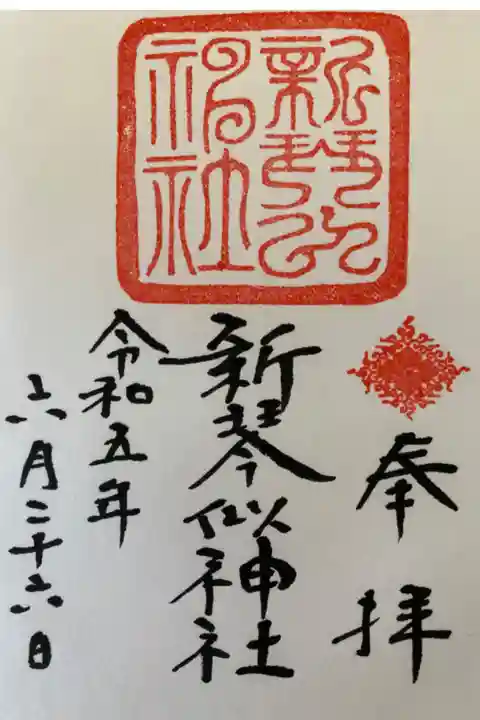 奉拝
新琴似神社
新琴似神社
令和五年
六月二十六日